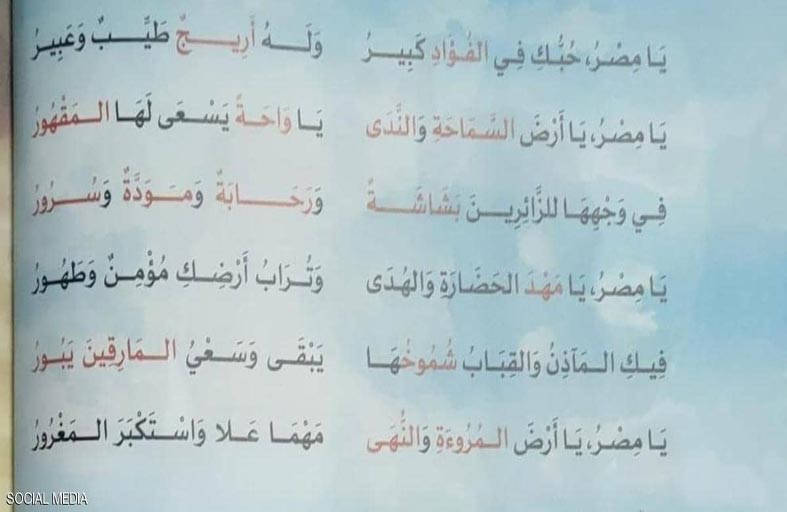 يَا مِصْرُ، حُبُّكِ فِي الفُؤَادِ كَبِيرُ وَلَهُ أَرِيجٌ طَيِّبٌ وَعَبِيرُ
يَا مِصْرُ، يَا أَرْضَ السَّمَاحَةِ وَالنَّدَى يَا وَاحَةً يَسْعَى لَهَا المَقْهُورُ
فِي وَجْهِهَا للزَّائِرِينَ بَشَاشَةٌ وَرَحَابَةٌ وَمَوَدَّةٌ وَسُرُورُ
يَا مِصْرُ، يَا مَهْدَ الحَضَارَةِ وَالهُدَى وَتُرَابُ أَرْضِكِ مُؤْمِنٌ وَطَهُورُ
فِيكِ المَآذِنُ وَالقِبَابُ شُمُوخُهَا يَبْقَى وَسَعْيُ المَارِقِينَ يَبُورُ
يَا مِصْرُ، يَا أَرْضَ المُرُوءَةِ وَالنُّهَى مَهْمَا عَلا وَاسْتَكْبَرَ المَغْرُورُ
SOCIAL MEDIA